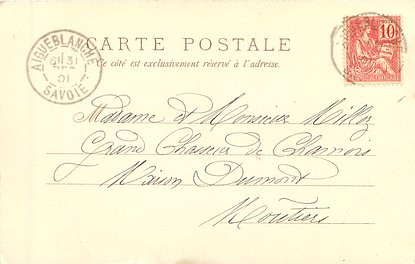 AIGUEBLANCHE
31
01
SAVOIE
CARTE POSTALE
Ce côté est exclusivement réservé à l'adresse.
10
Madame et Monsieur Milloz
Grand Chasseur de Chamois
Maison Dumont
Moutiers